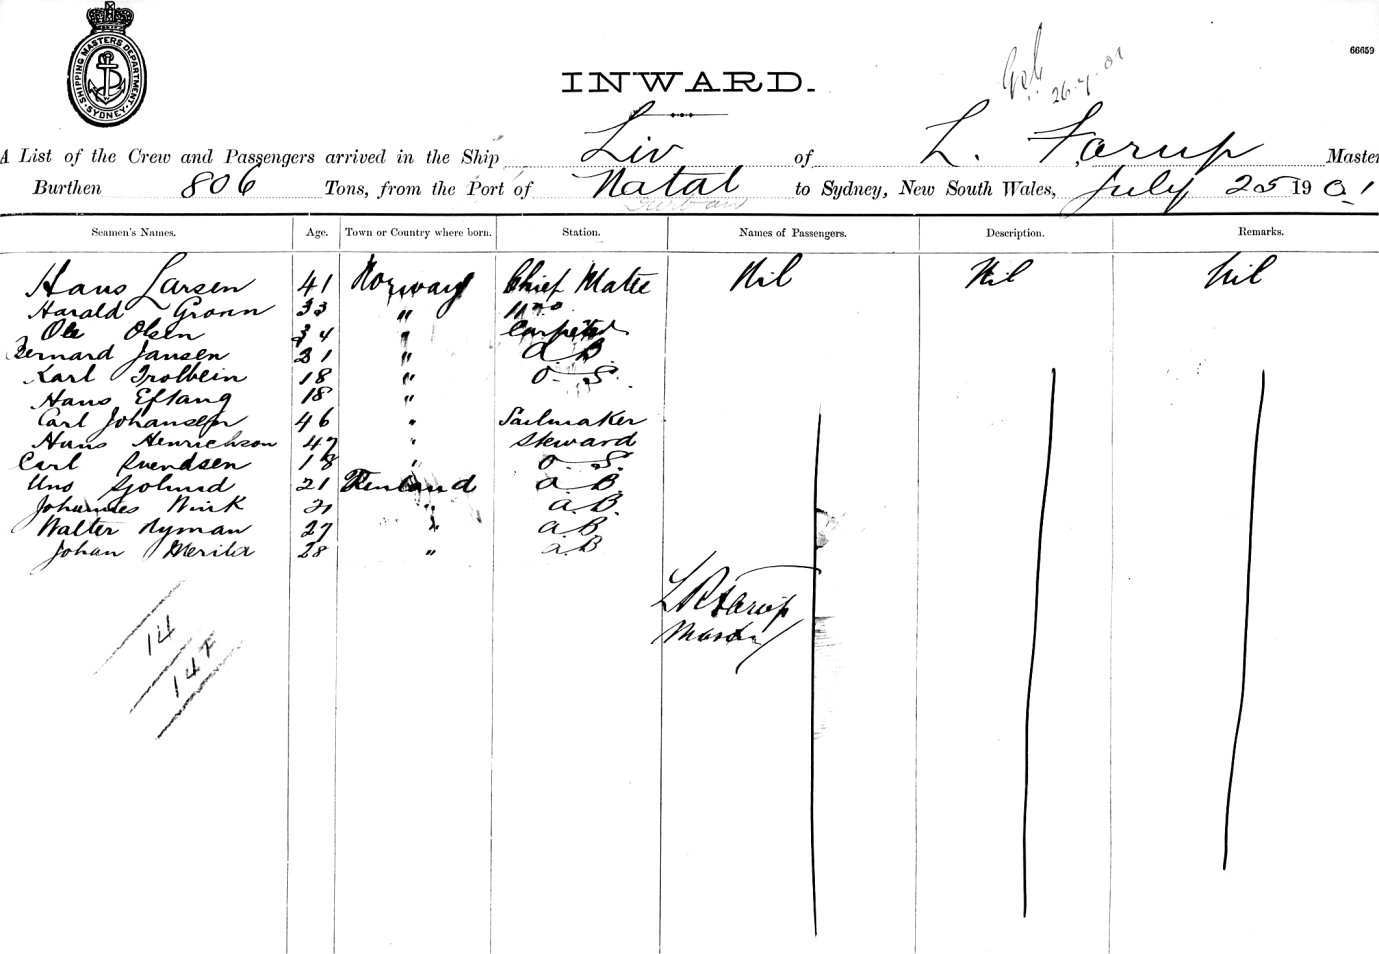 SHIPPING MASTERS DEPARTMENT. SYDNEY.
66659
26-7-01
INWARD.
A List of the Crew and Passengers arrived in the Ship Liv of L. Farup Master
Burthen 806 Tons, from the Port of Natal to Sydney, New South Wales, July 25 1901
Durban
Seamen's Names. Age. Town or Country where born. Station. Names of Passengers. Description. Remarks.
Hans Larsen 41 Norway Chief Mate Nil Nil Nil
Harald Gronn 33 "
Ole Olsen 34 "
Bernard Jansen 31 " a. B.
Karl Trolbein 18 " O. S.
Hans Eftang 18 "
Carl Johansen 46 " Sailmaker
Hans Henrichson 47 " Steward
Carl Svendsen 18 " O. S.
Uno 21 Finland a. B.
Johannes Wirk 21 " a. B.
Walter Nyman 27 " a. B.
Johan 28 " a. B
L R Farup
Master
14
147